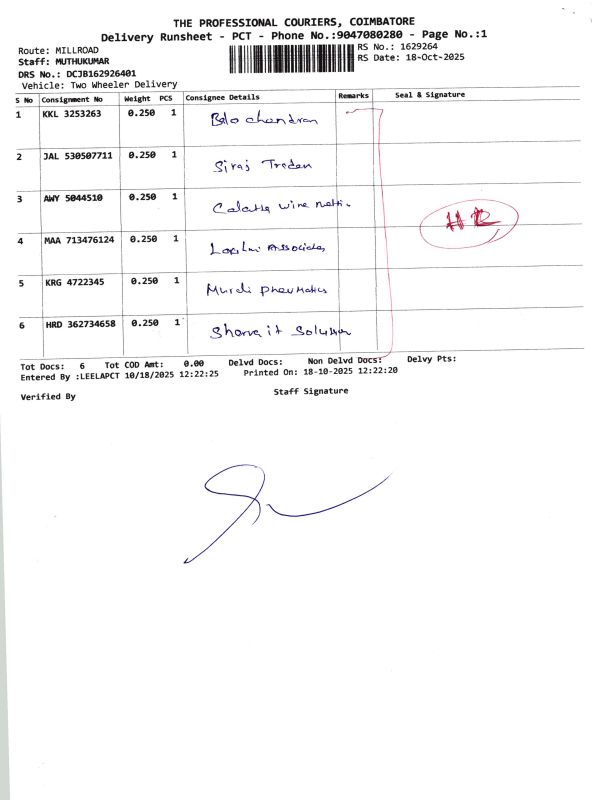 THE PROFESSIONAL COURIERS, COIMBATORE
Delivery Runsheet - PCT - Phone No.:9047080280 - Page No.:1
Route: MILLROAD
RS No.: 1629264
Staff: MUTHUKUMAR
RS Date: 18-Oct-2025
DRS No.: DCJB162926401
Vehicle: Two Wheeler Delivery
S No Consignment No Weight PCS Consignee Details Remarks Seal & Signature
1 KKL 3253263 0.250 1 chandran
2 JAL 530507711 0.250 1 Siraj
3 AWY 5044510 0.250 1 wire
4 MAA 713476124 0.250 1 Associates
5 KRG 4722345 0.250 1 Pneumatics
6 HRD 362734658 0.250 1 it
Tot Docs: 6 Tot COD Amt: 0.00 Delvd Docs: Non Delvd Docs: Delvy Pts:
Entered By :LEELAPCT 10/18/2025 12:22:25 Printed On: 18-10-2025 12:22:20
Verified By Staff Signature